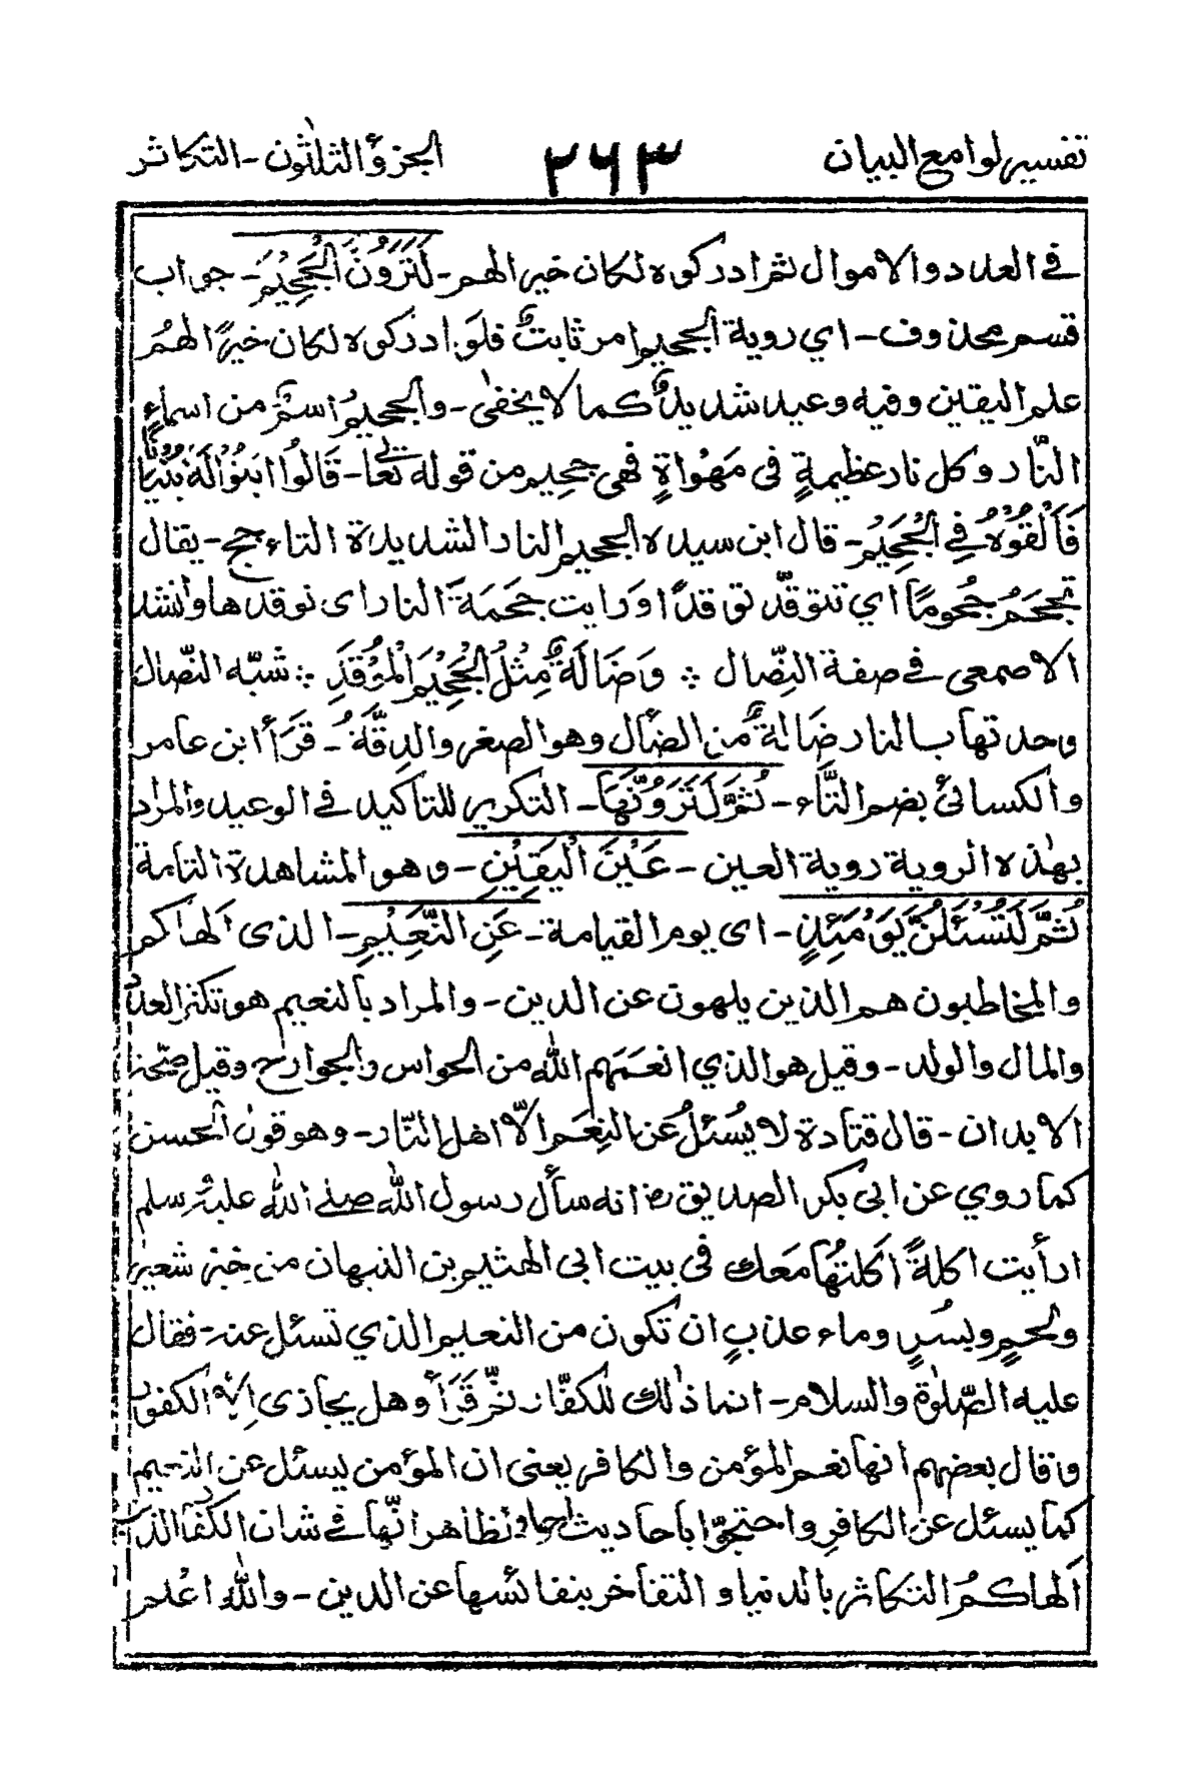 تفسير لوامع البيان ٢٦٣ الجزؤ الثلٰثون - التكاثر
في العدد والاموال ثم ادركوه لكان خيرا لهم - لَتَرَوُنَّ الْجَحِيْمَ - جواب
قسم محذوف - اي روية الجحيم امر ثابتٌ فلو ادركوه لكان خيرًا لهُم
علم اليقين وفيه وعيد شديدٌ كما لا يخفىٰ - والجحيمُ اسمٌ من اسماءِ
النّار وكل نار عظيمةٍ في مَهْواةٍ فهي جحِيم من قوله تعالى - قَالُوا ابْنُوْا لَهٗ بُنْيَانًا
فَاَلْقُوْهُ فِي الْجَحِيْمِ - قال ابن سيده الجحيم النار الشديدة التاءجج - يقال
تجحَمُ جُحُومًا اي تتوقّد توقدًا ورايت جحَمَةَ النار اى توقدها وانشد
الاصمعي في صفة النِّصال ∴ وَضَالَةٌ مِثْلُ الْجَحِيْمِ الْمُوْقَدِ ∴ شبّه النّصال
وحدتها بالنار ضَالةٌ من الضأل وهو الصغر والدِقَّةُ - قَرَأ ابن عامر
والكسائيُ بضم التَّاء - ثُمَّ لَتَرَوُنَّهَا - التكرير للتاكيد في الوعيد والمراد
بهٰذه الروية روية العين - عَيْنَ الْيَقِيْنِ - وهو المشاهدة التامة
ثُمَّ لَتُسْئَلُنَّ يَوْمَئِذٍ - اى يوم القيامة - عَنِ النَّعِيْمِ - الذى اَلهٰاكم
والمخاطبون هم الذين يلهون عن الدين - والمراد بالنعيم هو تكثر العدد
والمال والولد - وقيل هو الذي انعَمَهم الله من الحواس والجوارح وقيل صحّة
الابدان - قال قتادة لا يُسْئلُ عن النِعَم الّا اهل النّار - وهو قول الحسن
كما روي عن ابي بكر الصديق رض انه سأل رسول الله صلے الله عليه وسلم
ارأيت اكلةً اَكلتُها مَعك في بيت ابى الهثيم بن النبهان من خبز شعير
ولحمٍ وبُسْرٍ وماء عذبٍ ان تكون من النعيم الذي تسئل عنه - فقال
عليه الصّلوٰة والسلام - انما ذٰلك للكفّار ثمّ قَرَأَ وهل يجازى اِلّا الكفور
وقال بعضهم انها تعم المؤمن والكافر يعنى ان المؤمن ليسئل عن النعيم
كما يسئل عن الكافرِ واحتجوّا باحاديث احاد ونظاهر انّها في شان الكفّار الذين
اَلهاكمُ التكاثر بالدنيا و التفاخر بنفائسها عن الدين - والله اعْلم